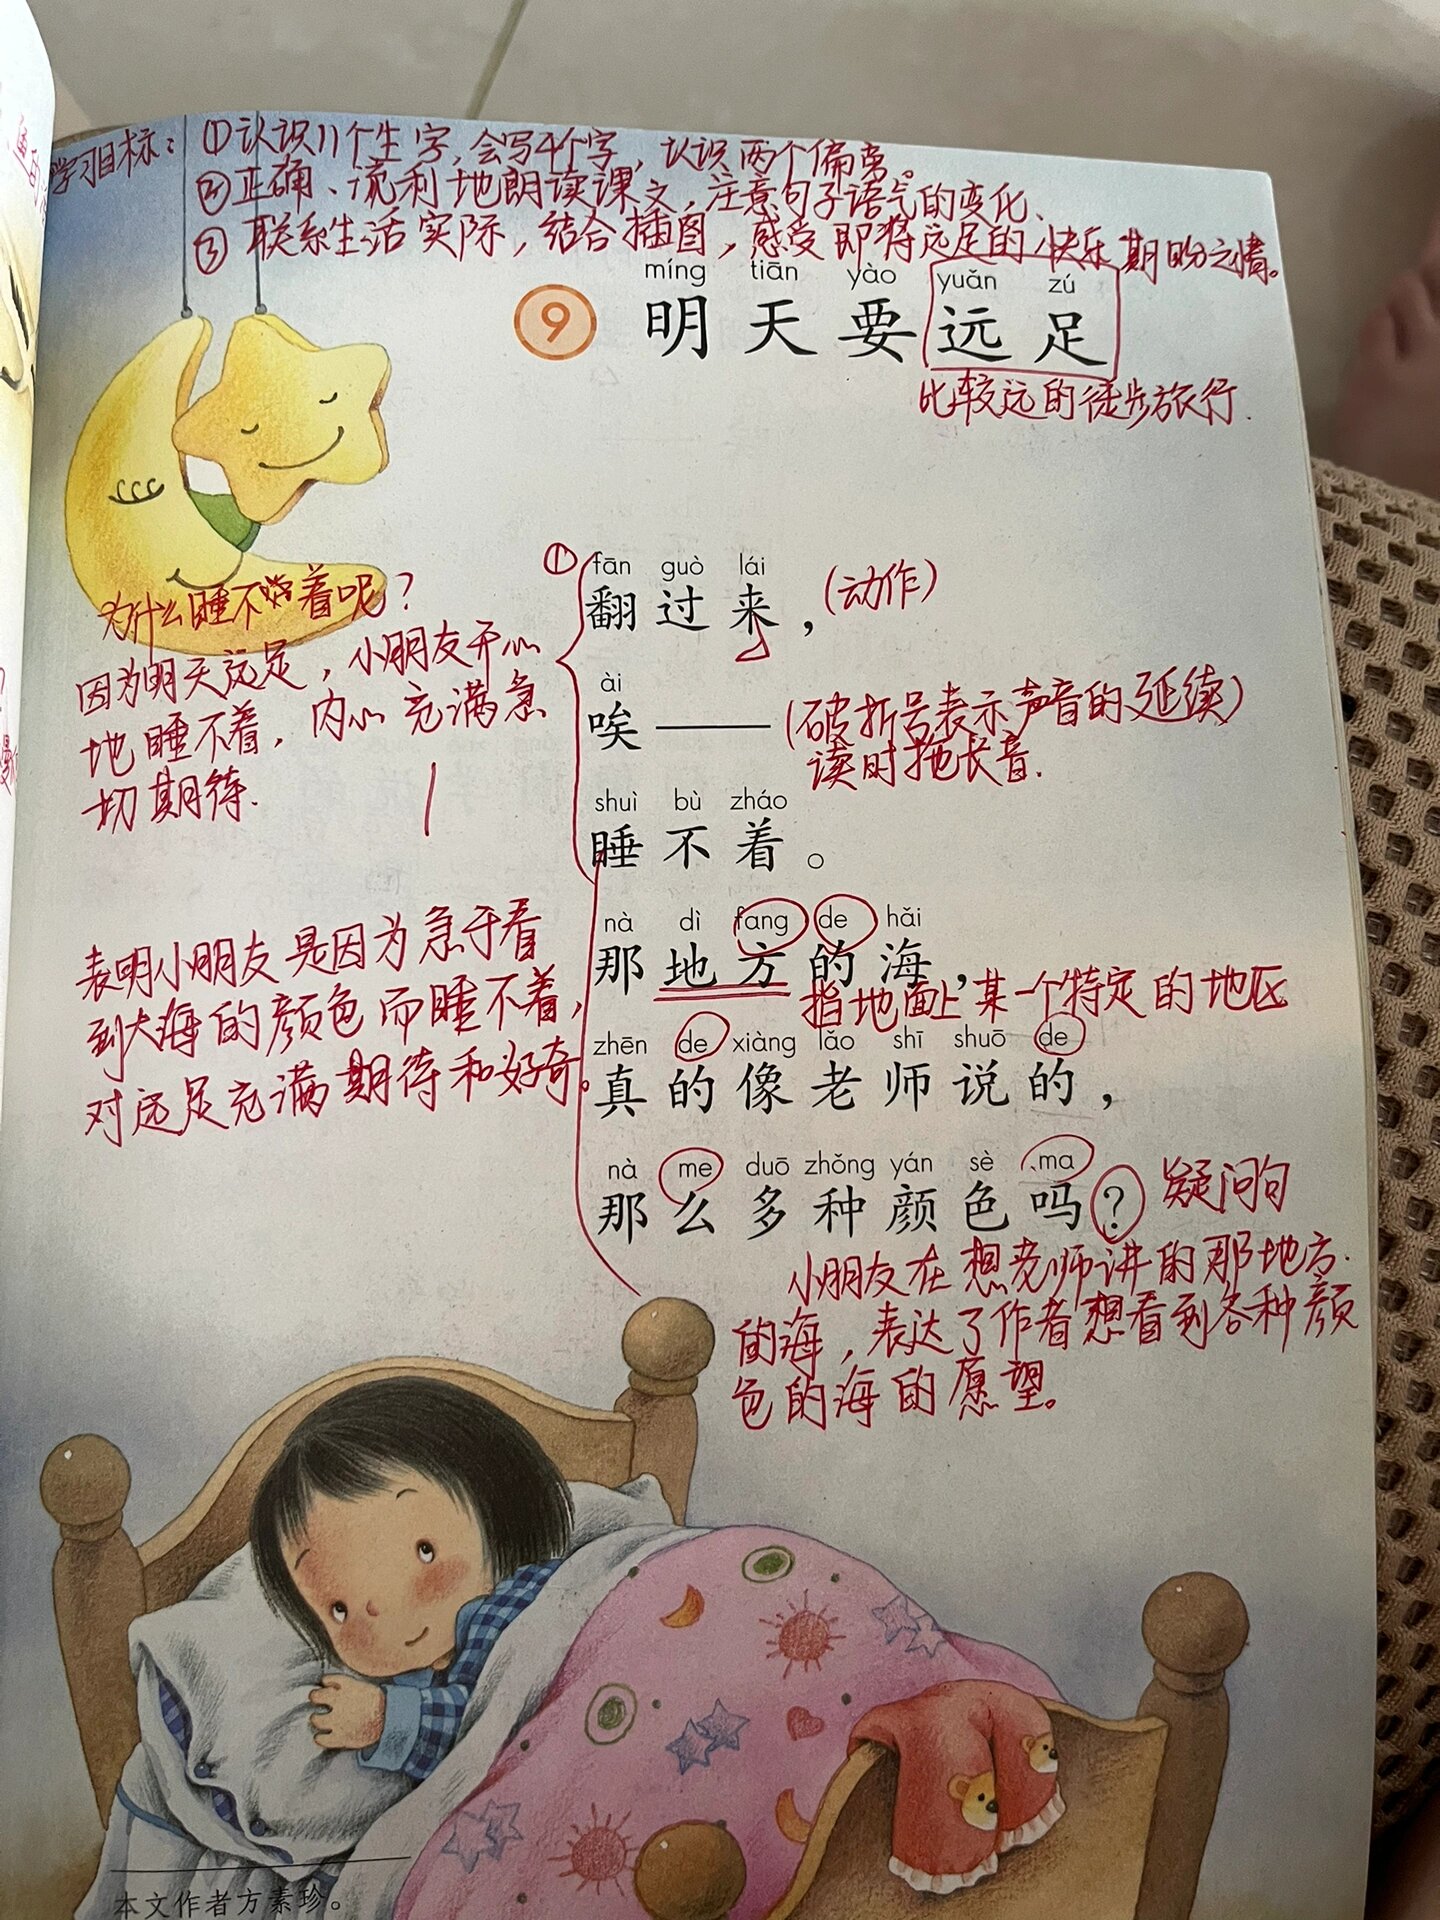 学习目标：①认识11个生字，会写4个字，认识两个偏旁。
②正确、流利地朗读课文，注意句子语气的变化、
③联系生活实际，结合插图，感受即将远足的快乐期盼之情。
míng tiān yào yuǎn zú
9 明天要远足
比较远的徒步旅行.
① fān guò lái
翻过来，(动作)
ài
唉——(破折号表示声音的延续)
读时拖长音.
shuì bù zháo
睡不着。
为什么睡不着呢？
因为明天远足，小朋友开心
地睡不着，内心充满急
切期待.
nà dì fang de hǎi
那地方的海，
指地面上某一个特定的地区
zhēn de xiàng lǎo shī shuō de
真的像老师说的，
nà me duō zhǒng yán sè ma
那么多种颜色吗？ 疑问句
表明小朋友是因为急于看
到大海的颜色而睡不着，
对远足充满期待和好奇。
小朋友在想老师讲的那地方.
的海，表达了作者想看到各种颜
色的海的愿望。
本文作者方素珍。